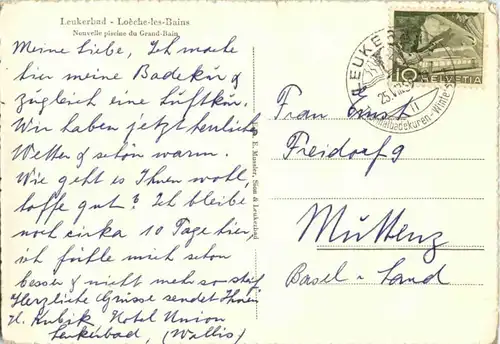 Leukerbad - Loèche-les-Bains
Nouvelle piscine du Grand-Bain
Meine Liebe, Ich mache
hier meine Badekur &
zugleich eine Luftkur.
Wir haben jetzt herrliches
Wetter & schön warm.
Wie geht es Ihnen wohl,
hoffe gut? Ich bleibe
noch cirka 10 Tage hier,
ich fühle mich schon
besser & nicht mehr so steif
Herzliche Grüsse sendet Ihnen
H. Kubik Hotel Union
Leukerbad, (Wallis)
E. Mussler, Sion & Leukerbad
LEUKER
25.VIII.5
11
Thermalbadekuren-Winte
10
HELVETIA
Frau Ernst
Freidorf 9
Muttenz
Basel-Land